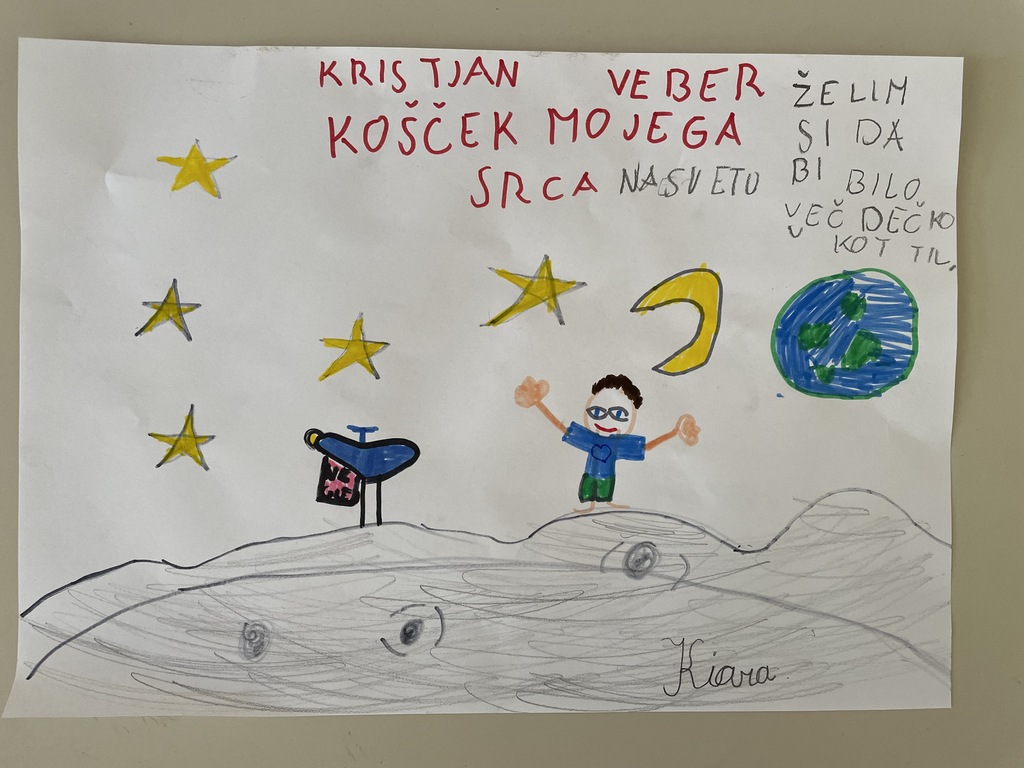 KRISTJAN VEBER
KOŠČEK MOJEGA
SRCA NA SVETU
ŽELIM
SI DA
BI BILO
VEČ DEČKO
KOT TI.
Kiara